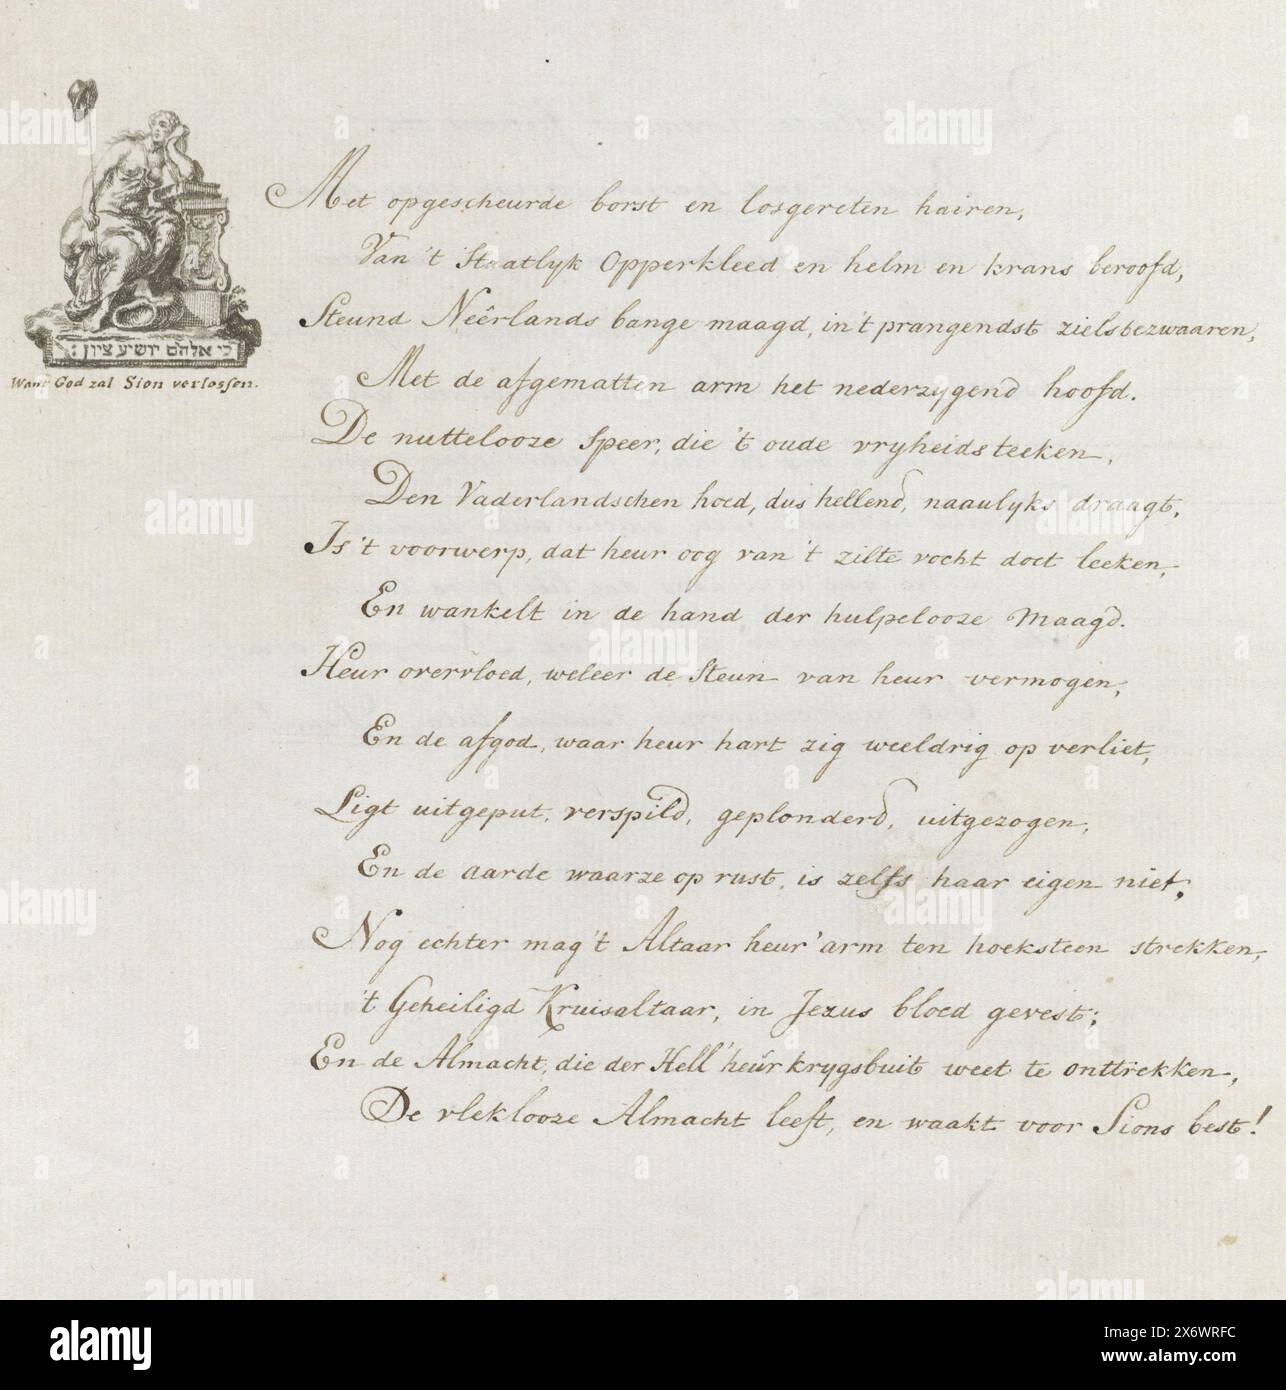 כי אלהים יושיע ציון :
Want God zal Sion verlossen.
Met opgescheurde borst en losgereten hairen,
Van 't Staatlyk Opperkleed en helm en krans beroofd,
Steund Neêrlands bange maagd, in 't prangendst zielsbezwaaren,
Met de afgematten arm het nederzygend hoofd.
De nuttelooze speer, die 't oude vryheidsteeken,
Den Vaderlandschen hoed, dus hellend, naaulyks draagt,
Is 't voorwerp, dat heur oog van 't zilte vocht doet leeken,
En wankelt in de hand der hulpelooze Maagd.
Heur overvloed, weleer de steun van heur vermogen,
En de afgod, waar heur hart zig weeldrig op verliet,
Ligt uitgeput, verspild, geplonderd, uitgezogen,
En de aarde waarze op rust, is zelfs haar eigen niet;
Nog echter mag 't Altaar heur' arm ten hoeksteen strekken,
't Geheiligd Kruisaltaar, in Jezus bloed gevest;
En de Almacht, die der Hell' heur krygsbuit weet te onttrekken,
De vleklooze Almacht leeft, en waakt voor Sions best!
alamy
Image ID: 2X6WRFC
www.alamy.com